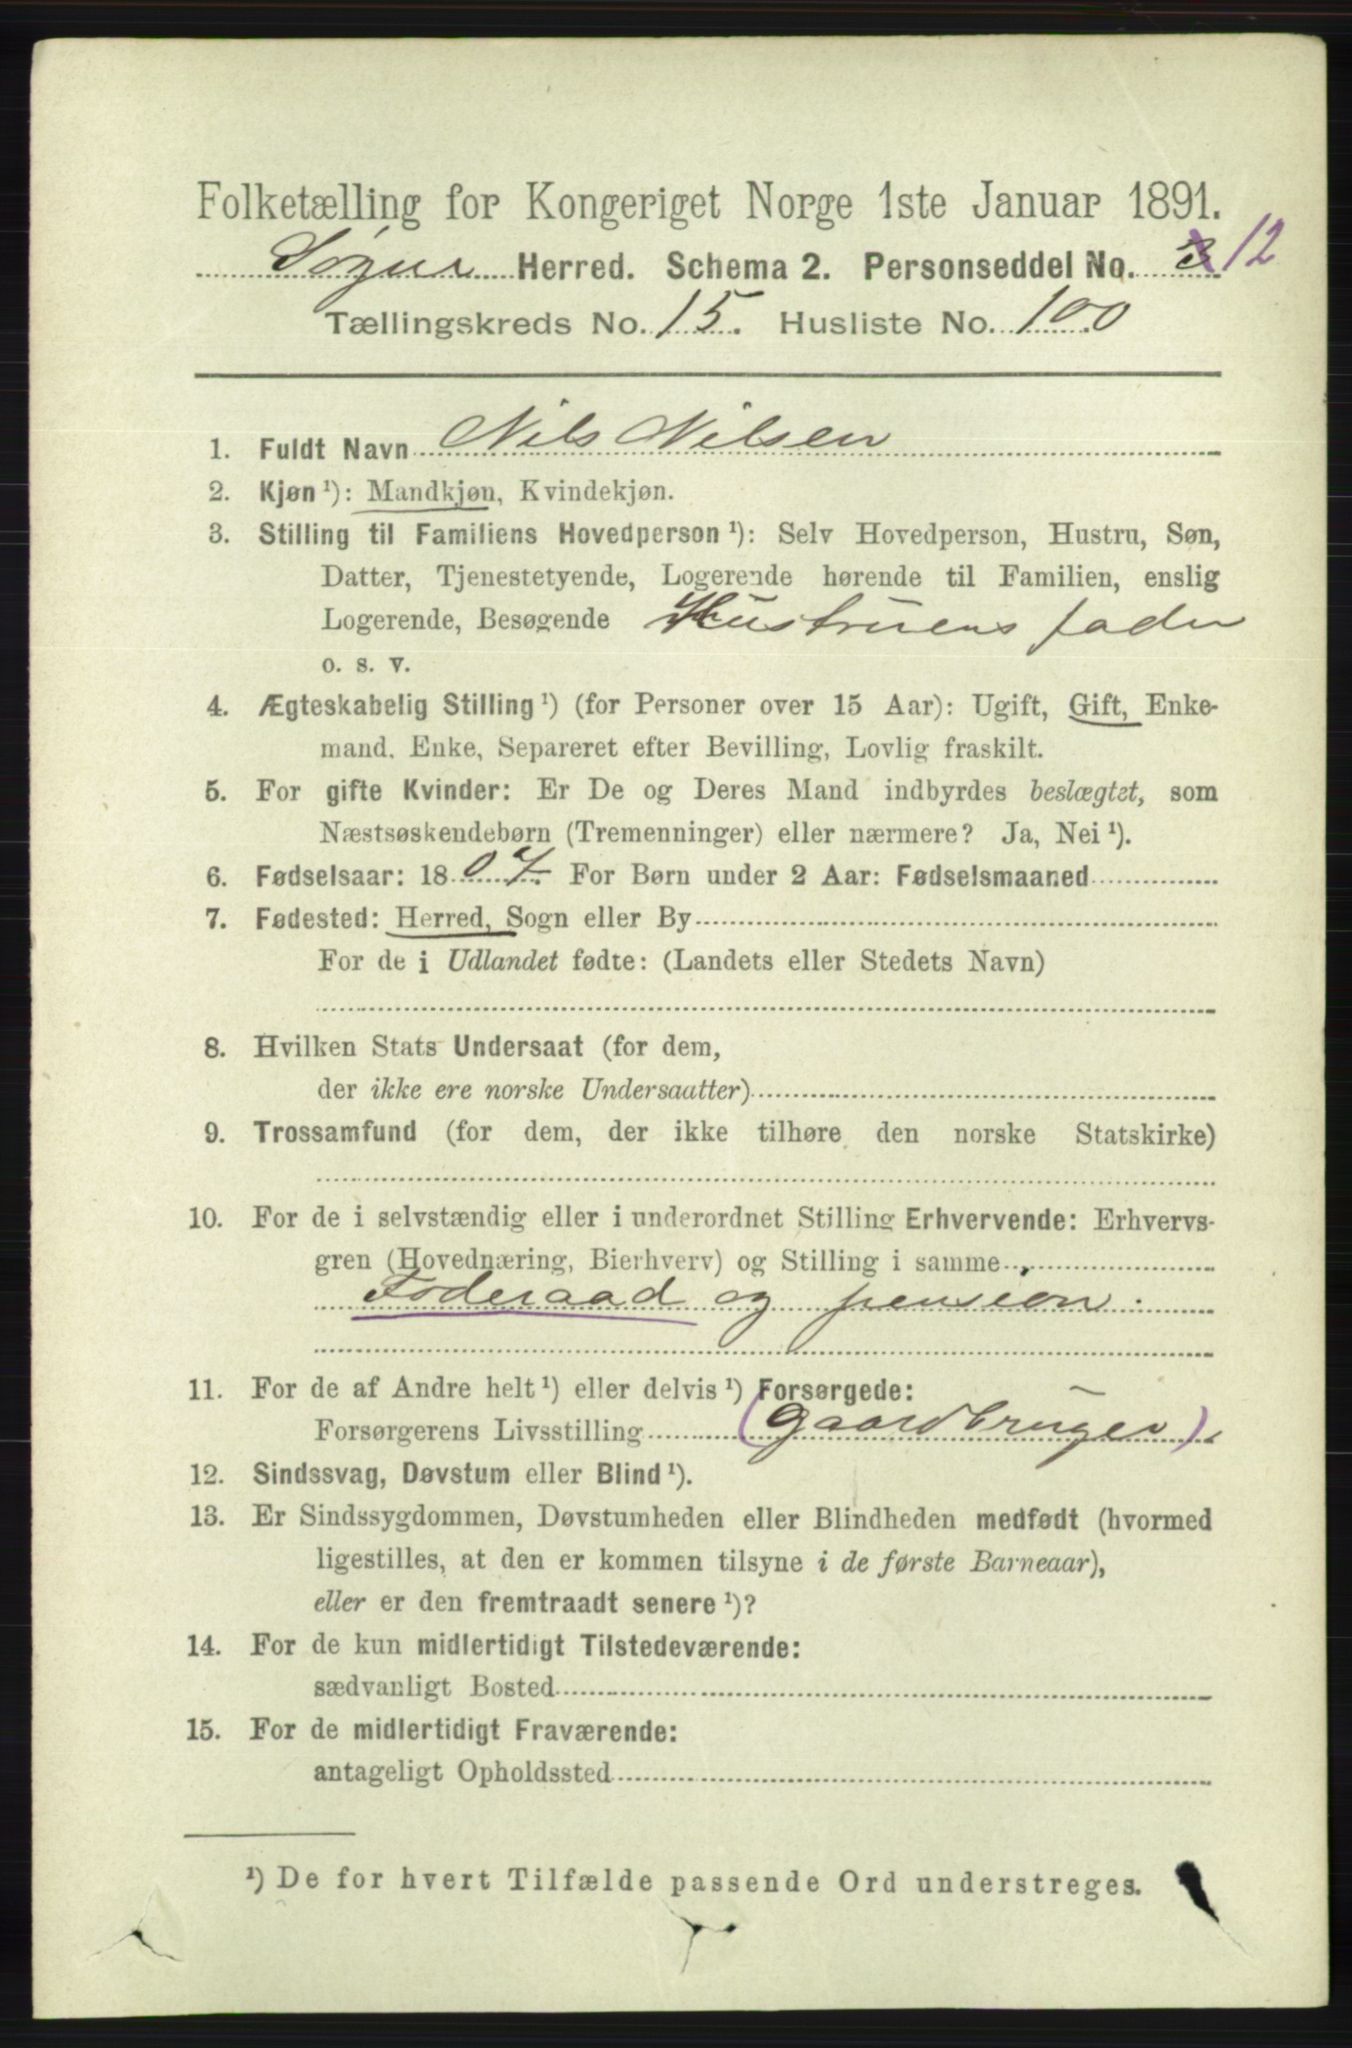 Folketælling for Kongeriget Norge 1ste Januar 1891.
Søgne Herred. Schema 2. Personseddel No. 3 12
Tællingskreds No. 15. Husliste No. 100
1. Fuldt Navn Nils Nilsen
2. Kjøn¹): Mandkjøn, Kvindekjøn.
3. Stilling til Familiens Hovedperson¹): Selv Hovedperson, Hustru, Søn,
Datter, Tjenestetyende, Logerende hørende til Familien, enslig
Logerende, Besøgende Hustruens fader
o. s. v.
4. Ægteskabelig Stilling¹) (for Personer over 15 Aar): Ugift, Gift, Enke-
mand, Enke, Separeret efter Bevilling, Lovlig fraskilt.
5. For gifte Kvinder: Er De og Deres Mand indbyrdes beslægtet, som
Næstsøskendebørn (Tremenninger) eller nærmere? Ja, Nei¹).
6. Fødselsaar: 1807. For Børn under 2 Aar: Fødselsmaaned
7. Fødested: Herred, Sogn eller By
For de i Udlandet fødte: (Landets eller Stedets Navn)
8. Hvilken Stats Undersaat (for dem,
der ikke ere norske Undersaatter)
9. Trossamfund (for dem, der ikke tilhøre den norske Statskirke)
10. For de i selvstændig eller i underordnet Stilling Erhvervende: Erhvervs-
gren (Hovednæring, Bierhverv) og Stilling i samme
Føderaad og pension.
11. For de af Andre helt¹) eller delvis¹) Forsørgede:
Forsørgerens Livsstilling (gaardbruger)
12. Sindssvag, Døvstum eller Blind¹).
13. Er Sindssygdommen, Døvstumheden eller Blindheden medfødt (hvormed
ligestilles, at den er kommen tilsyne i de første Barneaar),
eller er den fremtraadt senere¹)?
14. For de kun midlertidigt Tilstedeværende:
sædvanligt Bosted
15. For de midlertidigt Fraværende:
antageligt Opholdssted
¹) De for hvert Tilfælde passende Ord understreges.